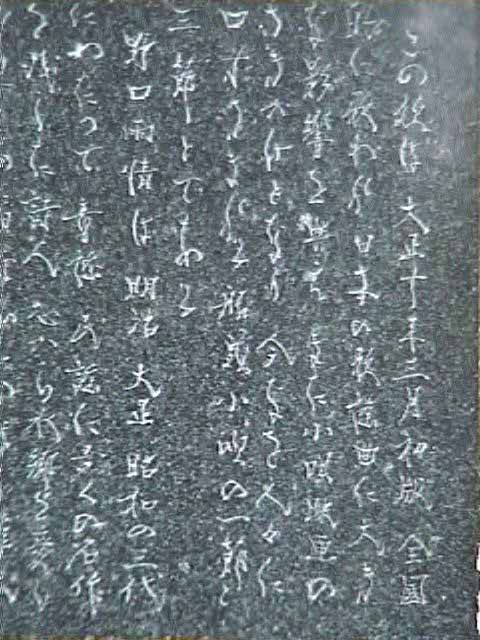 この は 大正十年三月初版 全国
的に歌われ 日本の歌謡曲に大き
な影響を与え 更に小唄映画の
さきがけとなり 今なお人々に
口ずさまれる 船頭小唄の一節と
三節とである
野口雨情は 明治 大正 昭和の三代
にわたって 童謡 民謡に多くの名作
を残した詩人 心から水郷を愛